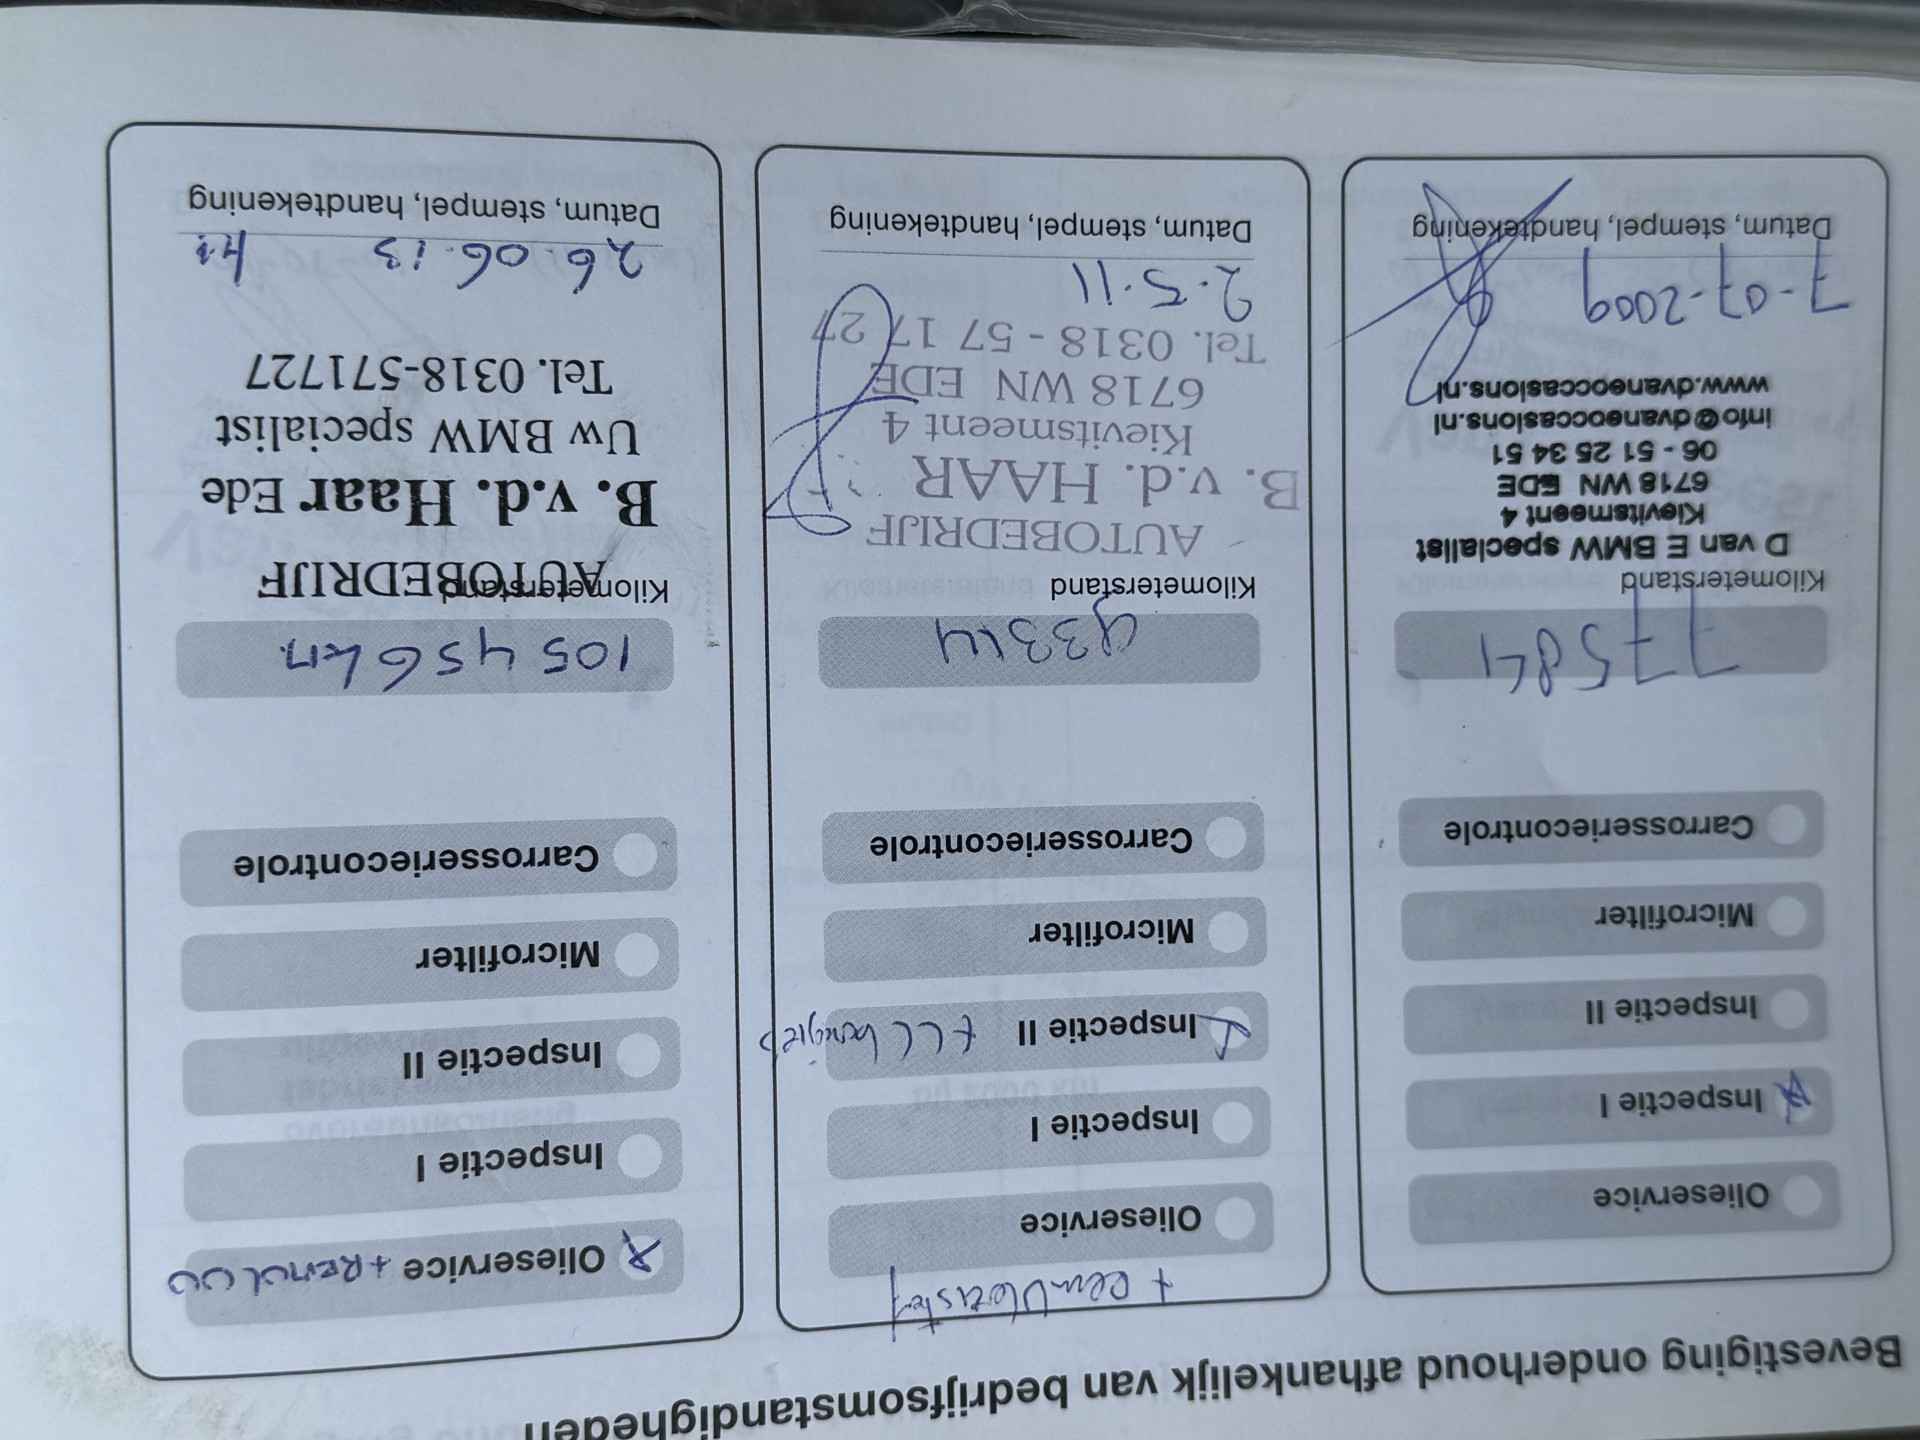 Bevestiging onderhoud afhankelijk van bedrijfsomstandigheden
Olieservice
Inspectie I
Inspectie II
Microfilter
Carrosseriecontrole
77584
Kilometerstand
D van E BMW specialist
Kievitsmeent 4
6718 WN EDE
06 - 51 25 34 51
info@dvaneoccasions.nl
www.dvaneoccasions.nl
7-07-2009
Datum, stempel, handtekening
+ Remvloeistof
Olieservice
Inspectie I
Inspectie II
Microfilter
Carrosseriecontrole
93314
Kilometerstand
AUTOBEDRIJF
B. v.d. HAAR
Kievitsmeent 4
6718 WN EDE
Tel. 0318 - 57 17 27
2.5.11
Datum, stempel, handtekening
Olieservice +
Inspectie I
Inspectie II
Microfilter
Carrosseriecontrole
105456 km.
Kilometerstand
AUTOBEDRIJF
B. v.d. Haar Ede
Uw BMW specialist
Tel. 0318-571727
26.06.13
Datum, stempel, handtekening